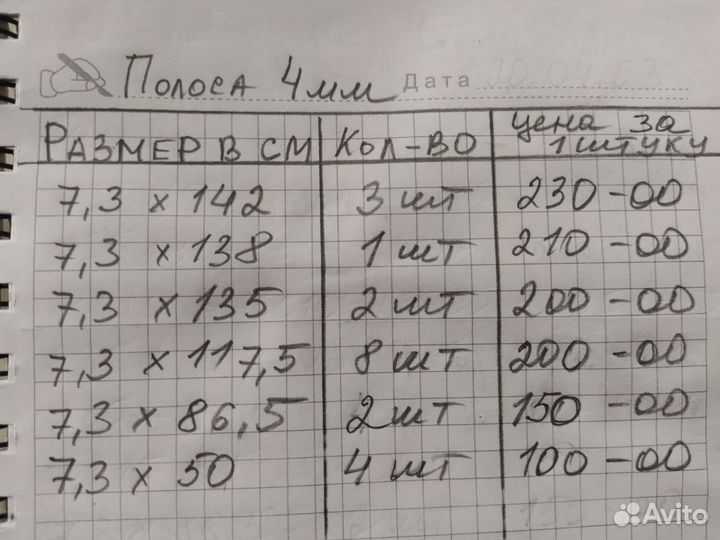 Полоса 4мм Дата
РАЗМЕР В СМ КОЛ-ВО цена за 1 штуку
7,3 х 142 3 шт 230-00
7,3 х 138 1 шт 210-00
7,3 х 135 2 шт 200-00
7,3 х 117,5 8 шт 200-00
7,3 х 86,5 2 шт 150-00
7,3 х 50 4 шт 100-00
Avito